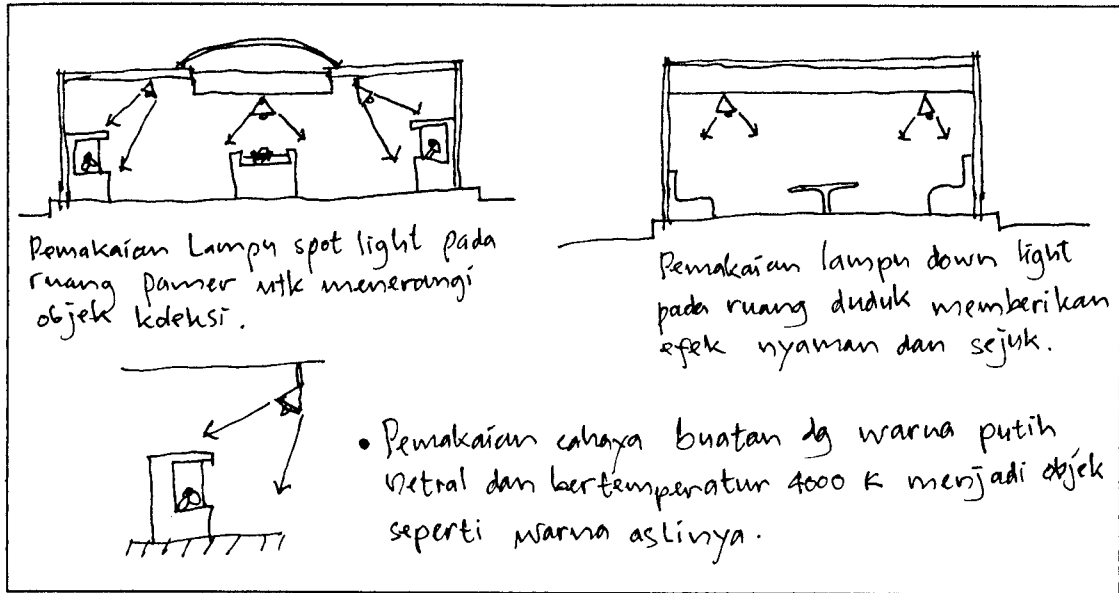 Pemakaian Lampu spot light pada
ruang pamer utk menerangi
objek koleksi.
Pemakaian lampu down light
pada ruang duduk memberikan
efek nyaman dan sejuk.
• Pemakaian cahaya buatan dg warna putih
netral dan bertemperatur 4000 K menjadi objek
seperti warna aslinya.